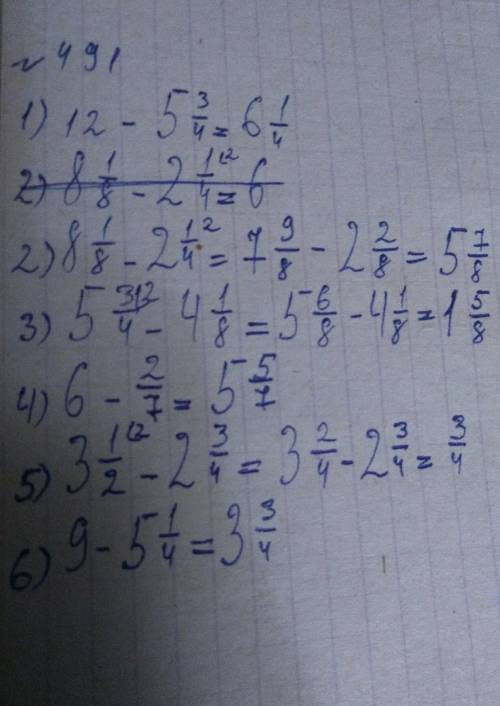 №491
1) 12 - 5 3/4 = 6 1/4
2) 8 1/8 - 2 1/4 ⁽² = 6
2) 8 1/8 - 2 1/4 ⁽² = 7 9/8 - 2 2/8 = 5 7/8
3) 5 3/4 ⁽² - 4 1/8 = 5 6/8 - 4 1/8 = 1 5/8
4) 6 - 2/7 = 5 5/7
5) 3 1/2 ⁽² - 2 3/4 = 3 2/4 - 2 3/4 = 3/4
6) 9 - 5 1/4 = 3 3/4